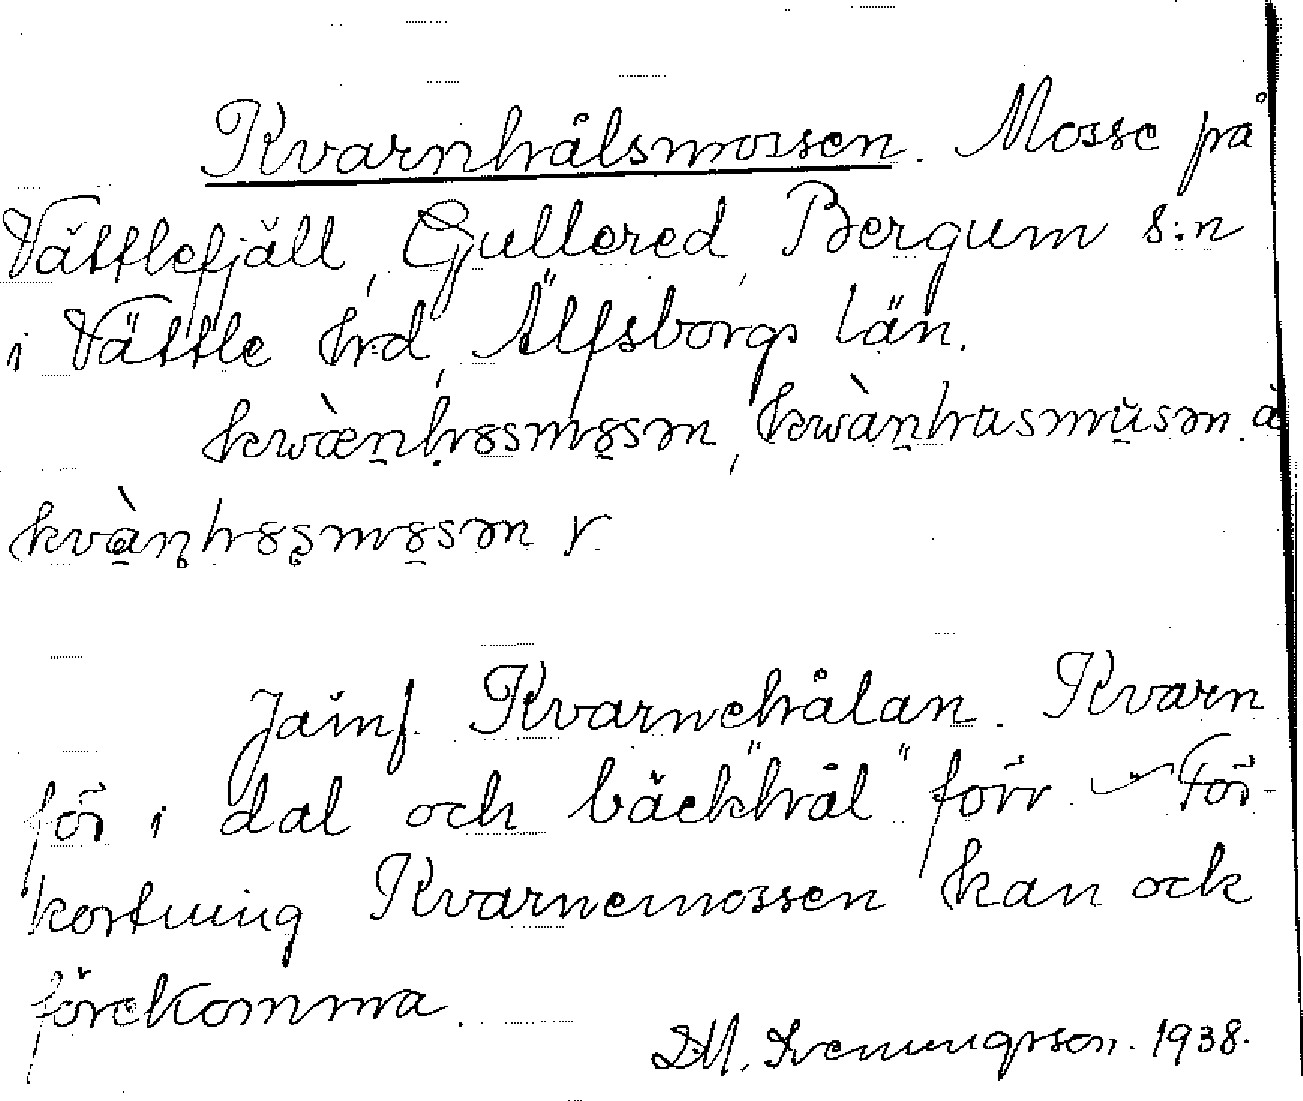 Kvarnhålsmossen. Mosse på
Vättlefjäll, Gullered, Bergum s:n
i Vättle hrd, Älfsborgs län.
Jämf. Kvarnehålan. Kvarn
för i dal och bäck"hål" förr. För-
kortning Kvarnemossen kan ock
förekomma.
D.M. Svenungsson. 1938.